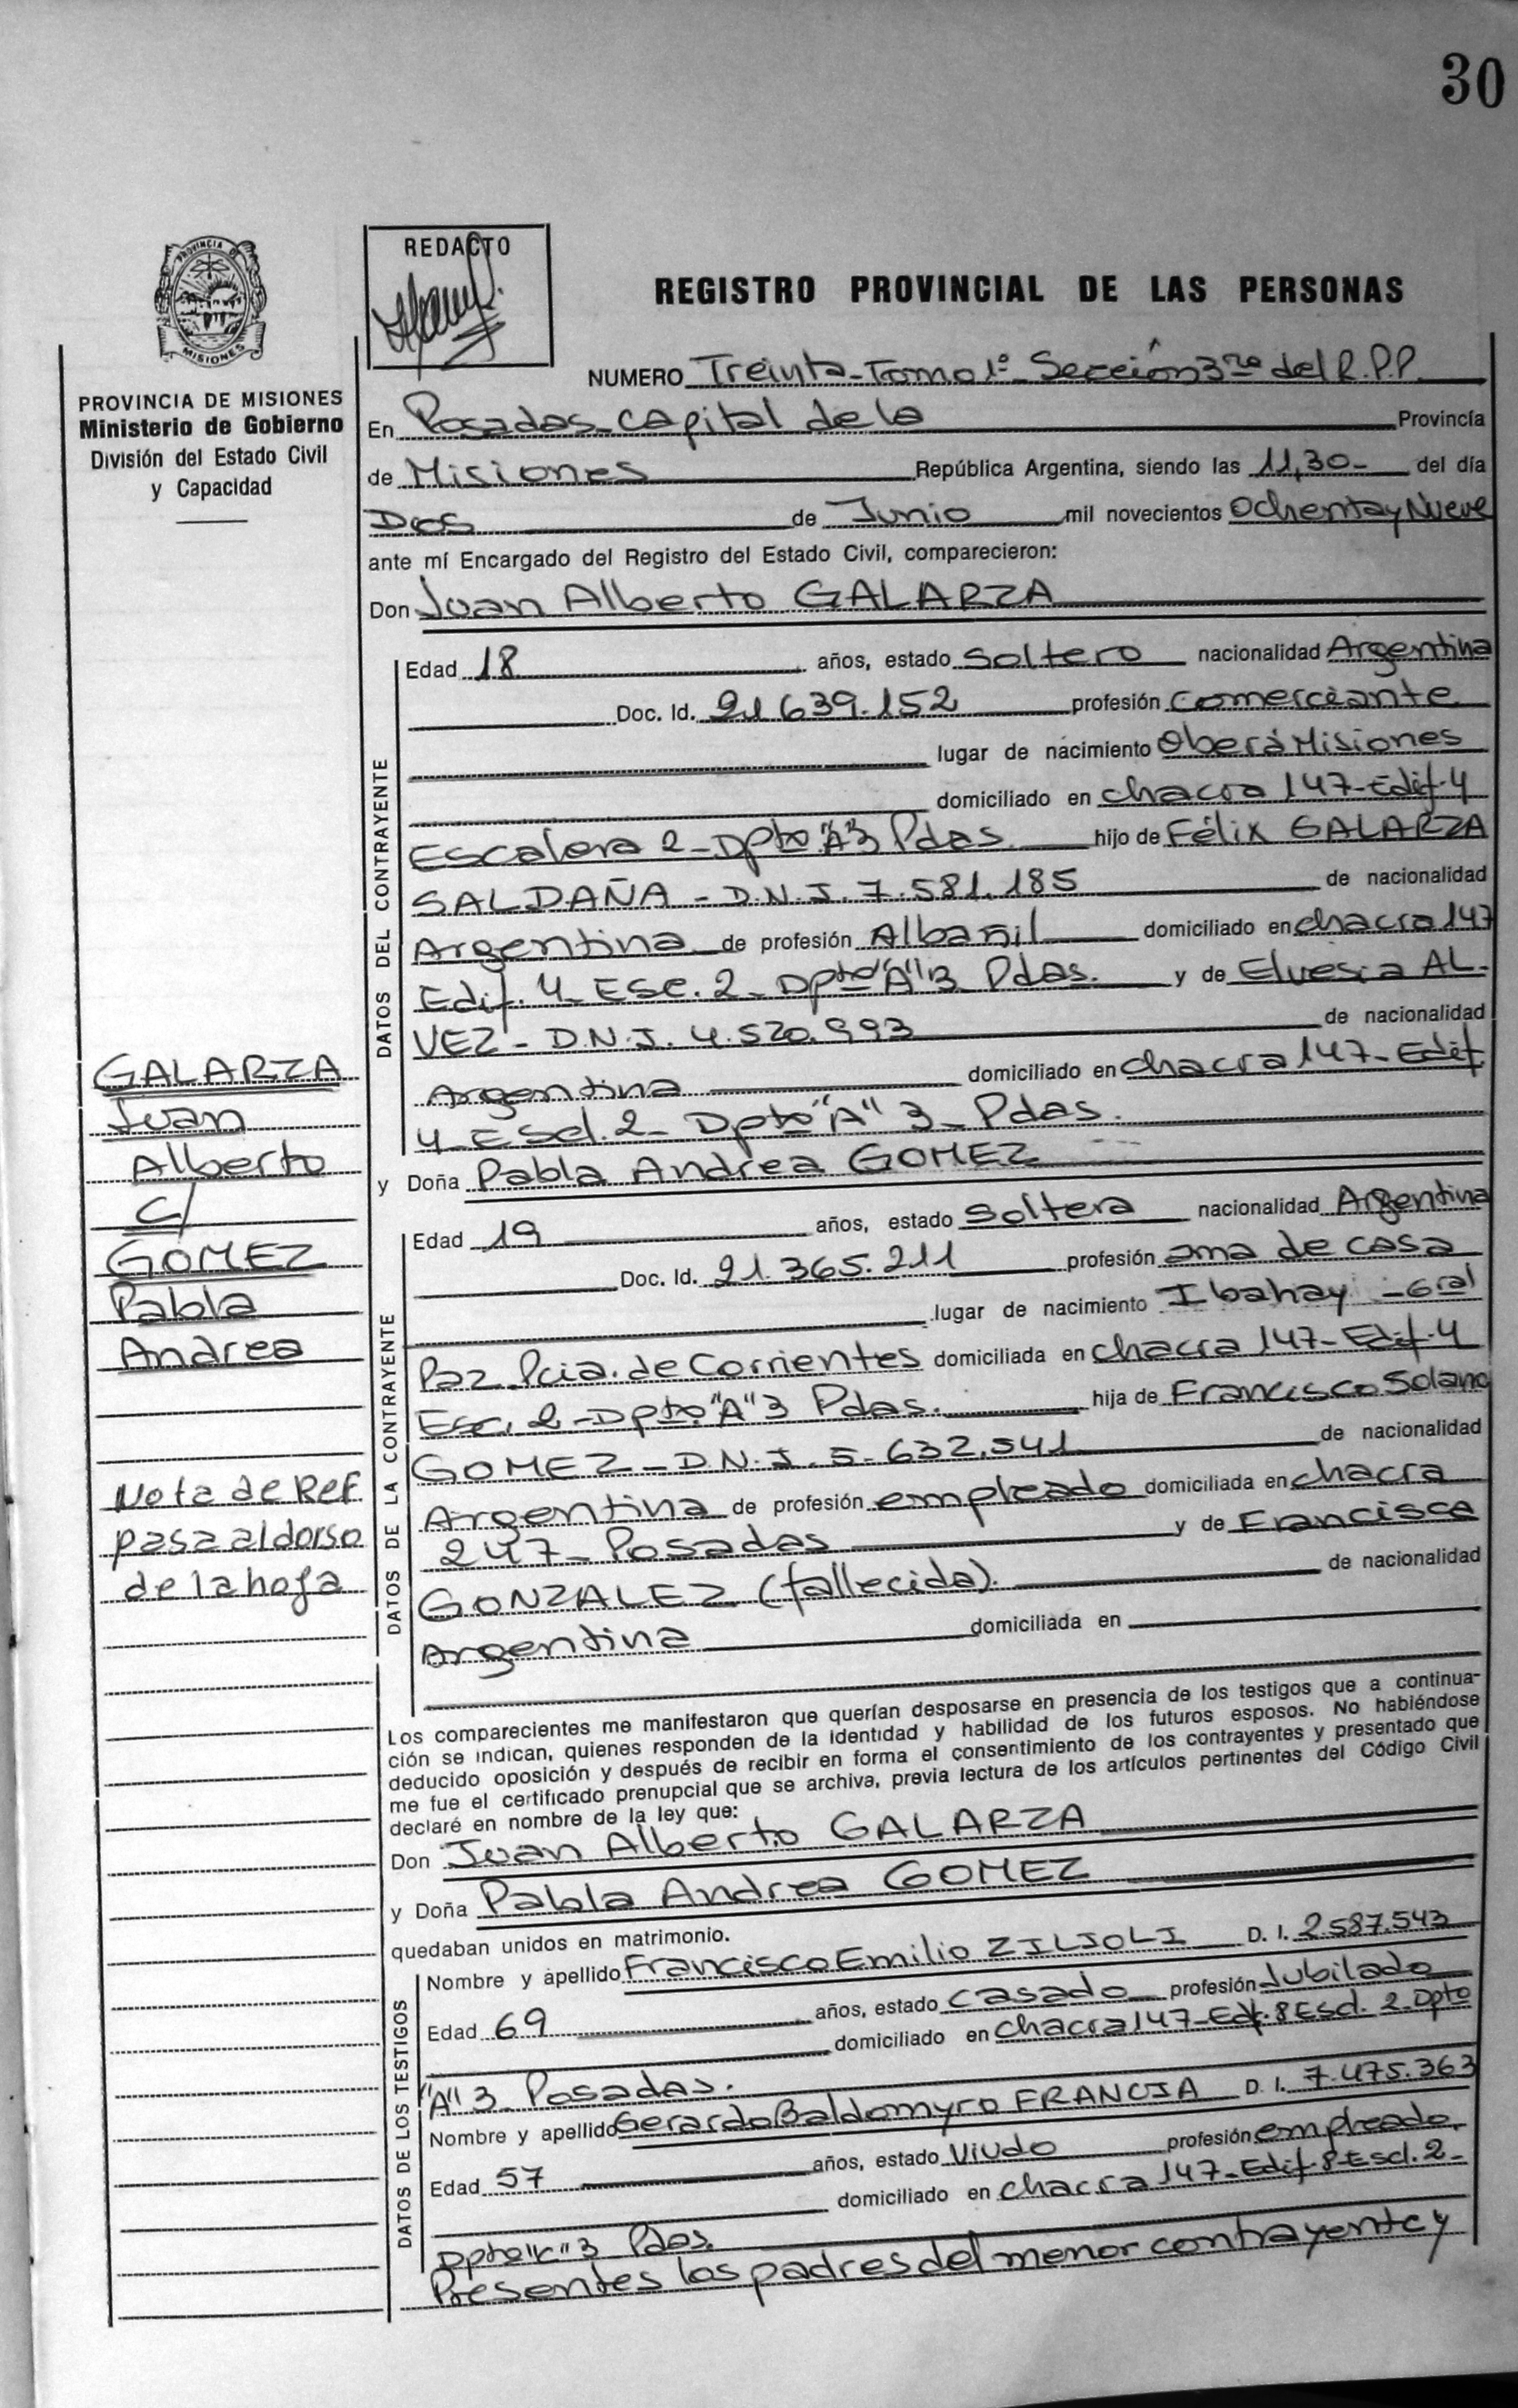 30
PROVINCIA DE
MISIONES
PROVINCIA DE MISIONES
Ministerio de Gobierno
División del Estado Civil
y Capacidad
REDACTO
REGISTRO PROVINCIAL DE LAS PERSONAS
NUMERO Treinta-Tomo 1º Sección 3ra del R.P.P.
En Posadas Capital de la Provincia
de Misiones República Argentina, siendo las 11,30- del día
Dos de Junio mil novecientos Ochenta y Nueve
ante mí Encargado del Registro del Estado Civil, comparecieron:
Don Juan Alberto GALARZA
DATOS DEL CONTRAYENTE
Edad 18 años, estado Soltero nacionalidad Argentina
Doc. Id. 21.639.152 profesión comerciante
lugar de nacimiento Oberá Misiones
domiciliado en chacra 147-Edif-4
Escalera 2-Dpto "A"3 Pdas. hijo de Félix GALARZA
SALDAÑA - D.N.I. 7.581.185 de nacionalidad
Argentina de profesión Albañil domiciliado en chacra 147
Edif. 4- Esc. 2- Dpto "A" 3 Pdas. y de Elvesia AL-
VEZ - D.N.I. 4.520.993 de nacionalidad
Argentina domiciliado en chacra 147-Edif.
4- Escl. 2- Dpto "A" 3- Pdas.
y Doña Pabla Andrea GOMEZ
DATOS DE LA CONTRAYENTE
Edad 19 años, estado Soltera nacionalidad Argentina
Doc. Id. 21.365.211 profesión ama de casa
lugar de nacimiento Ibahay - Gral
Paz Pcia. de Corrientes domiciliada en chacra 147-Edif-4
Esc. 2-Dpto. "A" 3 Pdas. hija de Francisco Solano
GOMEZ - D.N.I. 5.632.541 de nacionalidad
Argentina de profesión empleado domiciliada en chacra
247- Posadas y de Francisca
GONZALEZ (fallecida). de nacionalidad
Argentina domiciliada en
Los comparecientes me manifestaron que querían desposarse en presencia de los testigos que a continua-
ción se indican, quienes responden de la identidad y habilidad de los futuros esposos. No habiéndose
deducido oposición y después de recibir en forma el consentimiento de los contrayentes y presentado que
me fue el certificado prenupcial que se archiva, previa lectura de los artículos pertinentes del Código Civil
declaré en nombre de la ley que:
Don Juan Alberto GALARZA
y Doña Pabla Andrea GOMEZ
quedaban unidos en matrimonio.
DATOS DE LOS TESTIGOS
Nombre y apellido Francisco Emilio ZILIOLI D. I. 2.587.543
Edad 69 años, estado casado profesión Jubilado
domiciliado en chacra 147-Edf. 8 Escl. 2-Dpto
"A" 3- Posadas.
Nombre y apellido Gerardo Baldomyro FRANCIA D. I. 7.475.363
Edad 57 años, estado Viudo profesión empleado
domiciliado en chacra 147-Edif-8-Escl. 2-
Dpto "C" 3 Pdas.
Presentes los padres del menor contrayente y
GALARZA
Juan
Alberto
C/
GOMEZ
Pabla
Andrea
Nota de Ref
pasa al dorso
de la hoja